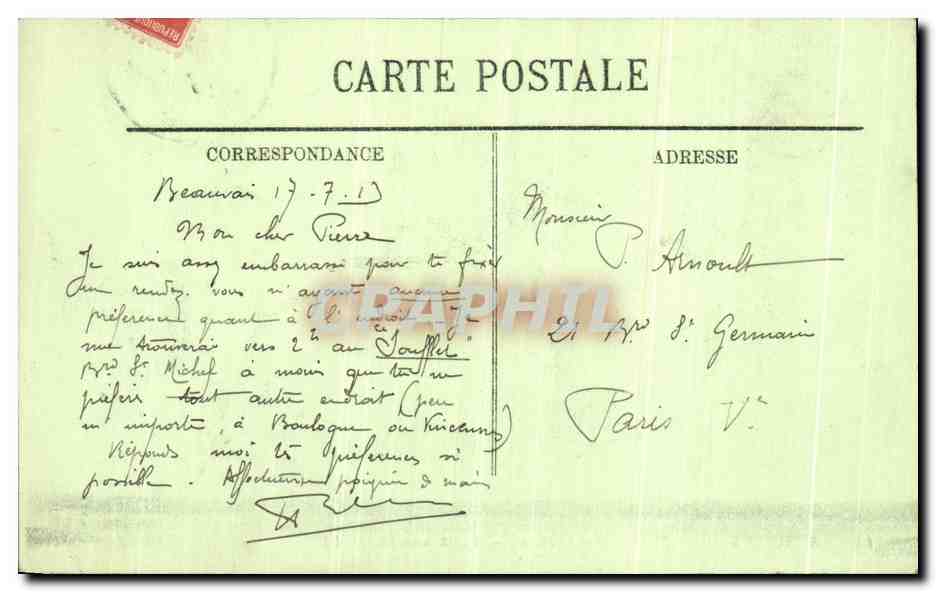 REPUBLIQUE
CARTE POSTALE
CORRESPONDANCE
Beauvais 17-7-13
Mon cher Pierre
Je suis assez embarrassé pour te fixer
un rendez-vous n'ayant aucune
préférence quant à l'endroit. Je
me trouverai vers 2h au "Soufflet"
Brd St Michel à moins que tu ne
préfères tout autre endroit (peu
m'importe, à Boulogne ou Vincennes)
Réponds moi tes préférences si
possible. Affectueuse poignée de main
ADRESSE
Monsieur
P. Arnoult
21 Brd St Germain
Paris Ve
CARAPHIL